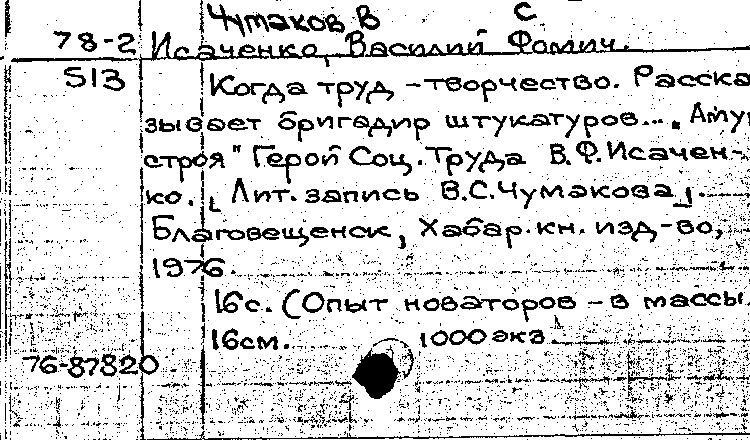 Чумаков В С
78-2 Исаченко, Василий Фомич.
513 Когда труд - творчество. Расска
зывает бригадир штукатуров... „Аму
строя" Герой Соц. Труда В.Ф.Исачен-
ко. [Лит. запись В.С.Чумакова].
Благовещенск, Хабар. кн. изд-во,
1976.
16с. (Опыт новаторов - в массы
16см. 1000 экз.
76-87820